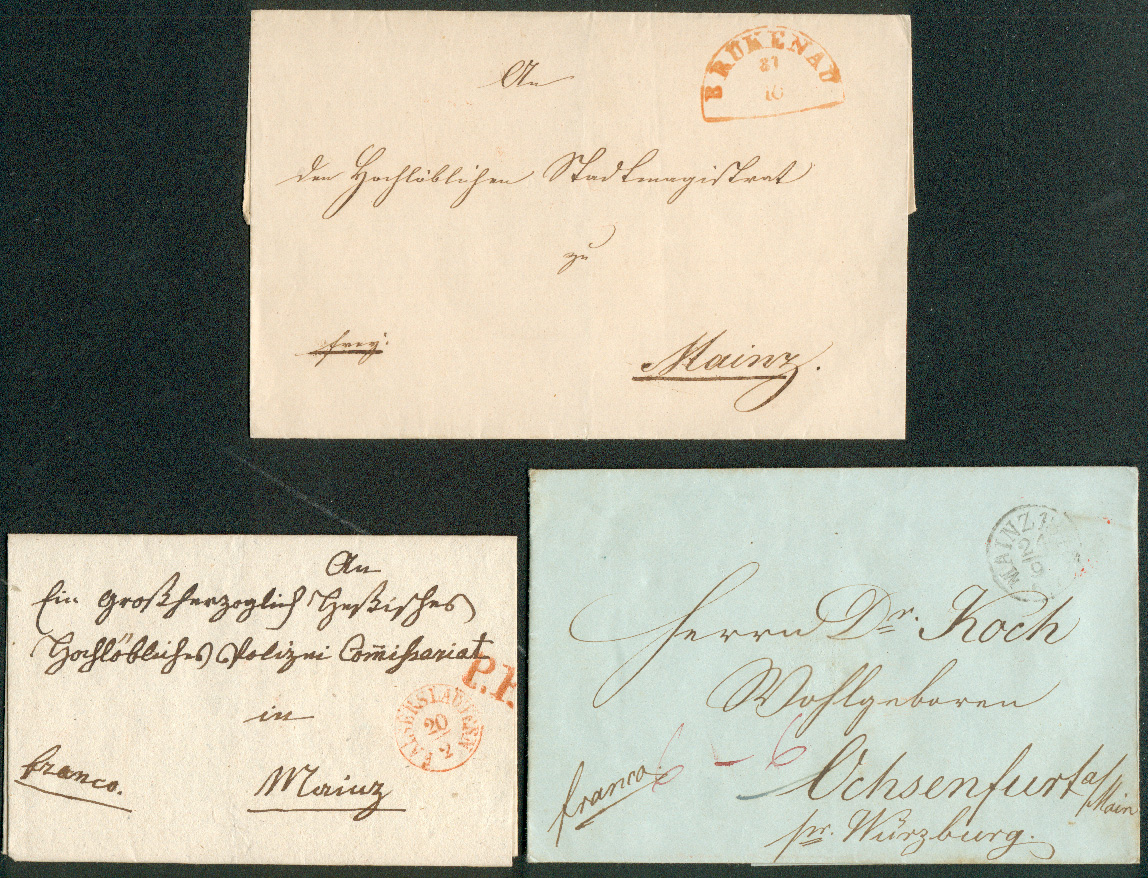 BRÜKENAU
31
10
An
den Hochlöblichen Stadtmagistrat
zu
frey.
Mainz.
An
Ein Großherzoglich Heßisches
Hochlöbliches Polizei Com̄ißariat
P.P.
in
KAISERSLAUTERN
20
2
franco.
Mainz
MAINZ
24
9
Herrn Dr. Koch
Wohlgeboren
franco
6 - 6
Ochsenfurt a/Main
pr. Würzburg.